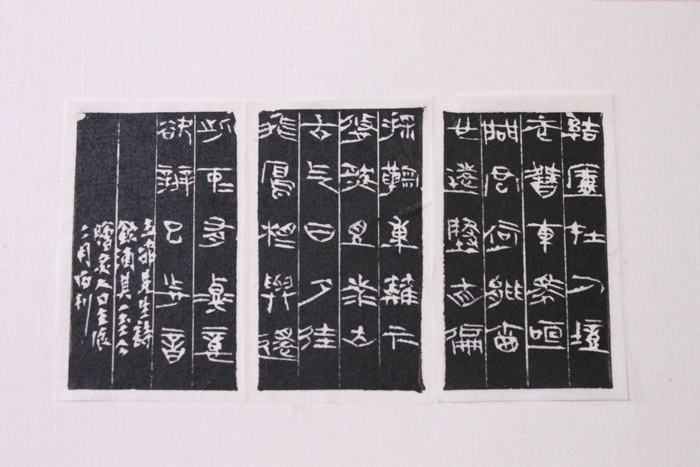 結廬在人境
而無車馬喧
問君何能爾
心遠地自偏
採菊東籬下
悠然見南山
山氣日夕佳
飛鳥相與還
此中有真意
欲辨已忘言
五柳先生詩
飲酒其五
二月